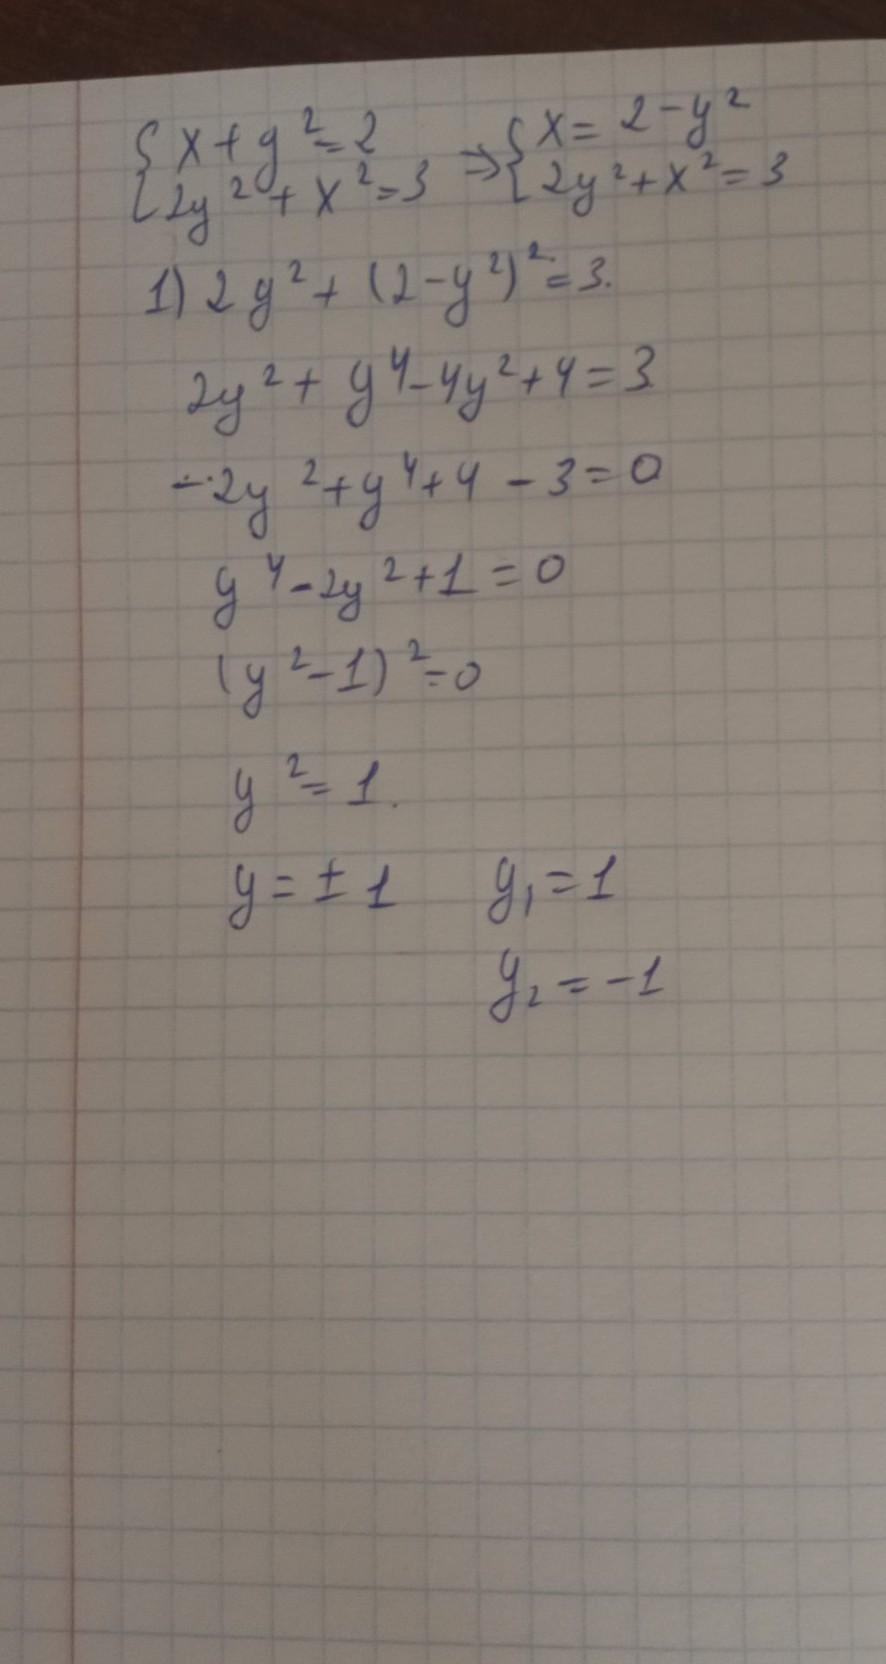 { x + y² = 2 ⇒ { x = 2 - y²
{ 2y² + x² = 3 { 2y² + x² = 3
1) 2y² + (2 - y²)² = 3.
2y² + y⁴ - 4y² + 4 = 3
- 2y² + y⁴ + 4 - 3 = 0
y⁴ - 2y² + 1 = 0
(y² - 1)² = 0
y² = 1.
y = ± 1 y₁ = 1
y₂ = -1